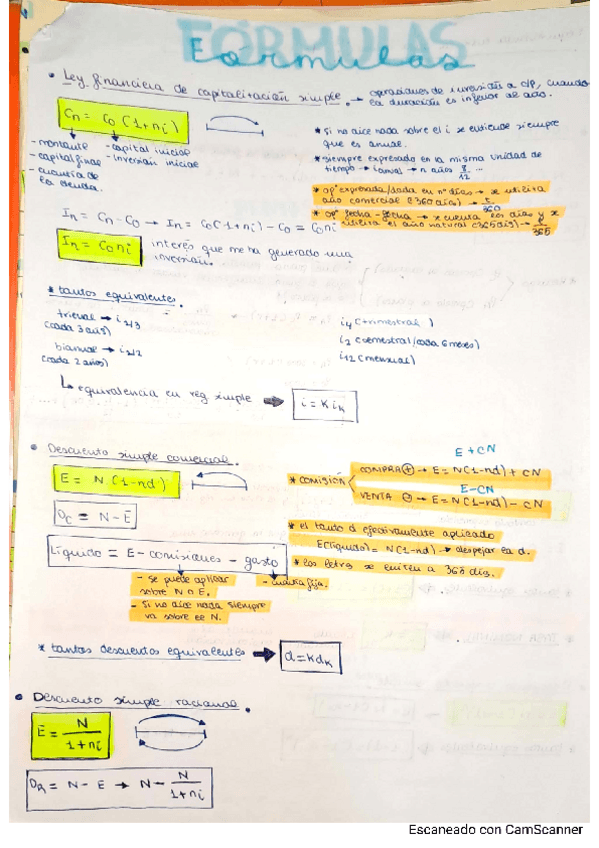 FÓRMULAS
Formulas
• Ley financiera de capitalización simple. → operaciones de inversión a c/p, cuando
la duración es inferior al año.
Cn = Co (1+ni)
- montante
- capital final
- cuantía de
la deuda.
- capital inicial
- inversión inicial
* si no dice nada sobre el i se entiende siempre
que es anual.
* siempre expresado en la misma unidad de
tiempo → i anual → n años 8/12 ...
* opº expresada/dada en nº días → se utiliza
año comercial (360 días) → t/360
* opº fecha-fecha → se cuenta los días y se
utiliza el año natural (365 días) → t/365
In = Cn - Co → In = Co(1+ni) - Co = Coni
In = Coni
interés que me ha generado una
inversión.
* tantos equivalentes.
trienal → i1/3
(cada 3 años)
bianual → i1/2
(cada 2 años)
i4 (trimestral)
i2 (semestral/cada 6 meses)
i12 (mensual)
↳ equivalencia en rég simple ➡ i = K ik
• Descuento simple comercial.
E = N (1-nd)
Dc = N - E
Líquido = E - comisiones - gasto
- se puede aplicar
sobre N o E.
- si no dice nada siempre
va sobre el N.
- cuantía fija.
E + CN
* COMISIÓN
COMPRA + → E = N(1-nd) + CN
E - CN
VENTA - → E = N(1-nd) - CN
* el tanto d efectivamente aplicado
E(líquido) = N(1-nd) → despejar la d.
* las letras se emiten a 360 días.
* tantos descuentos equivalentes ➡ d = K dk
• Descuento simple racional.
E = N/1+ni
DR = N - E → N - N/1+ni
Escaneado con CamScanner